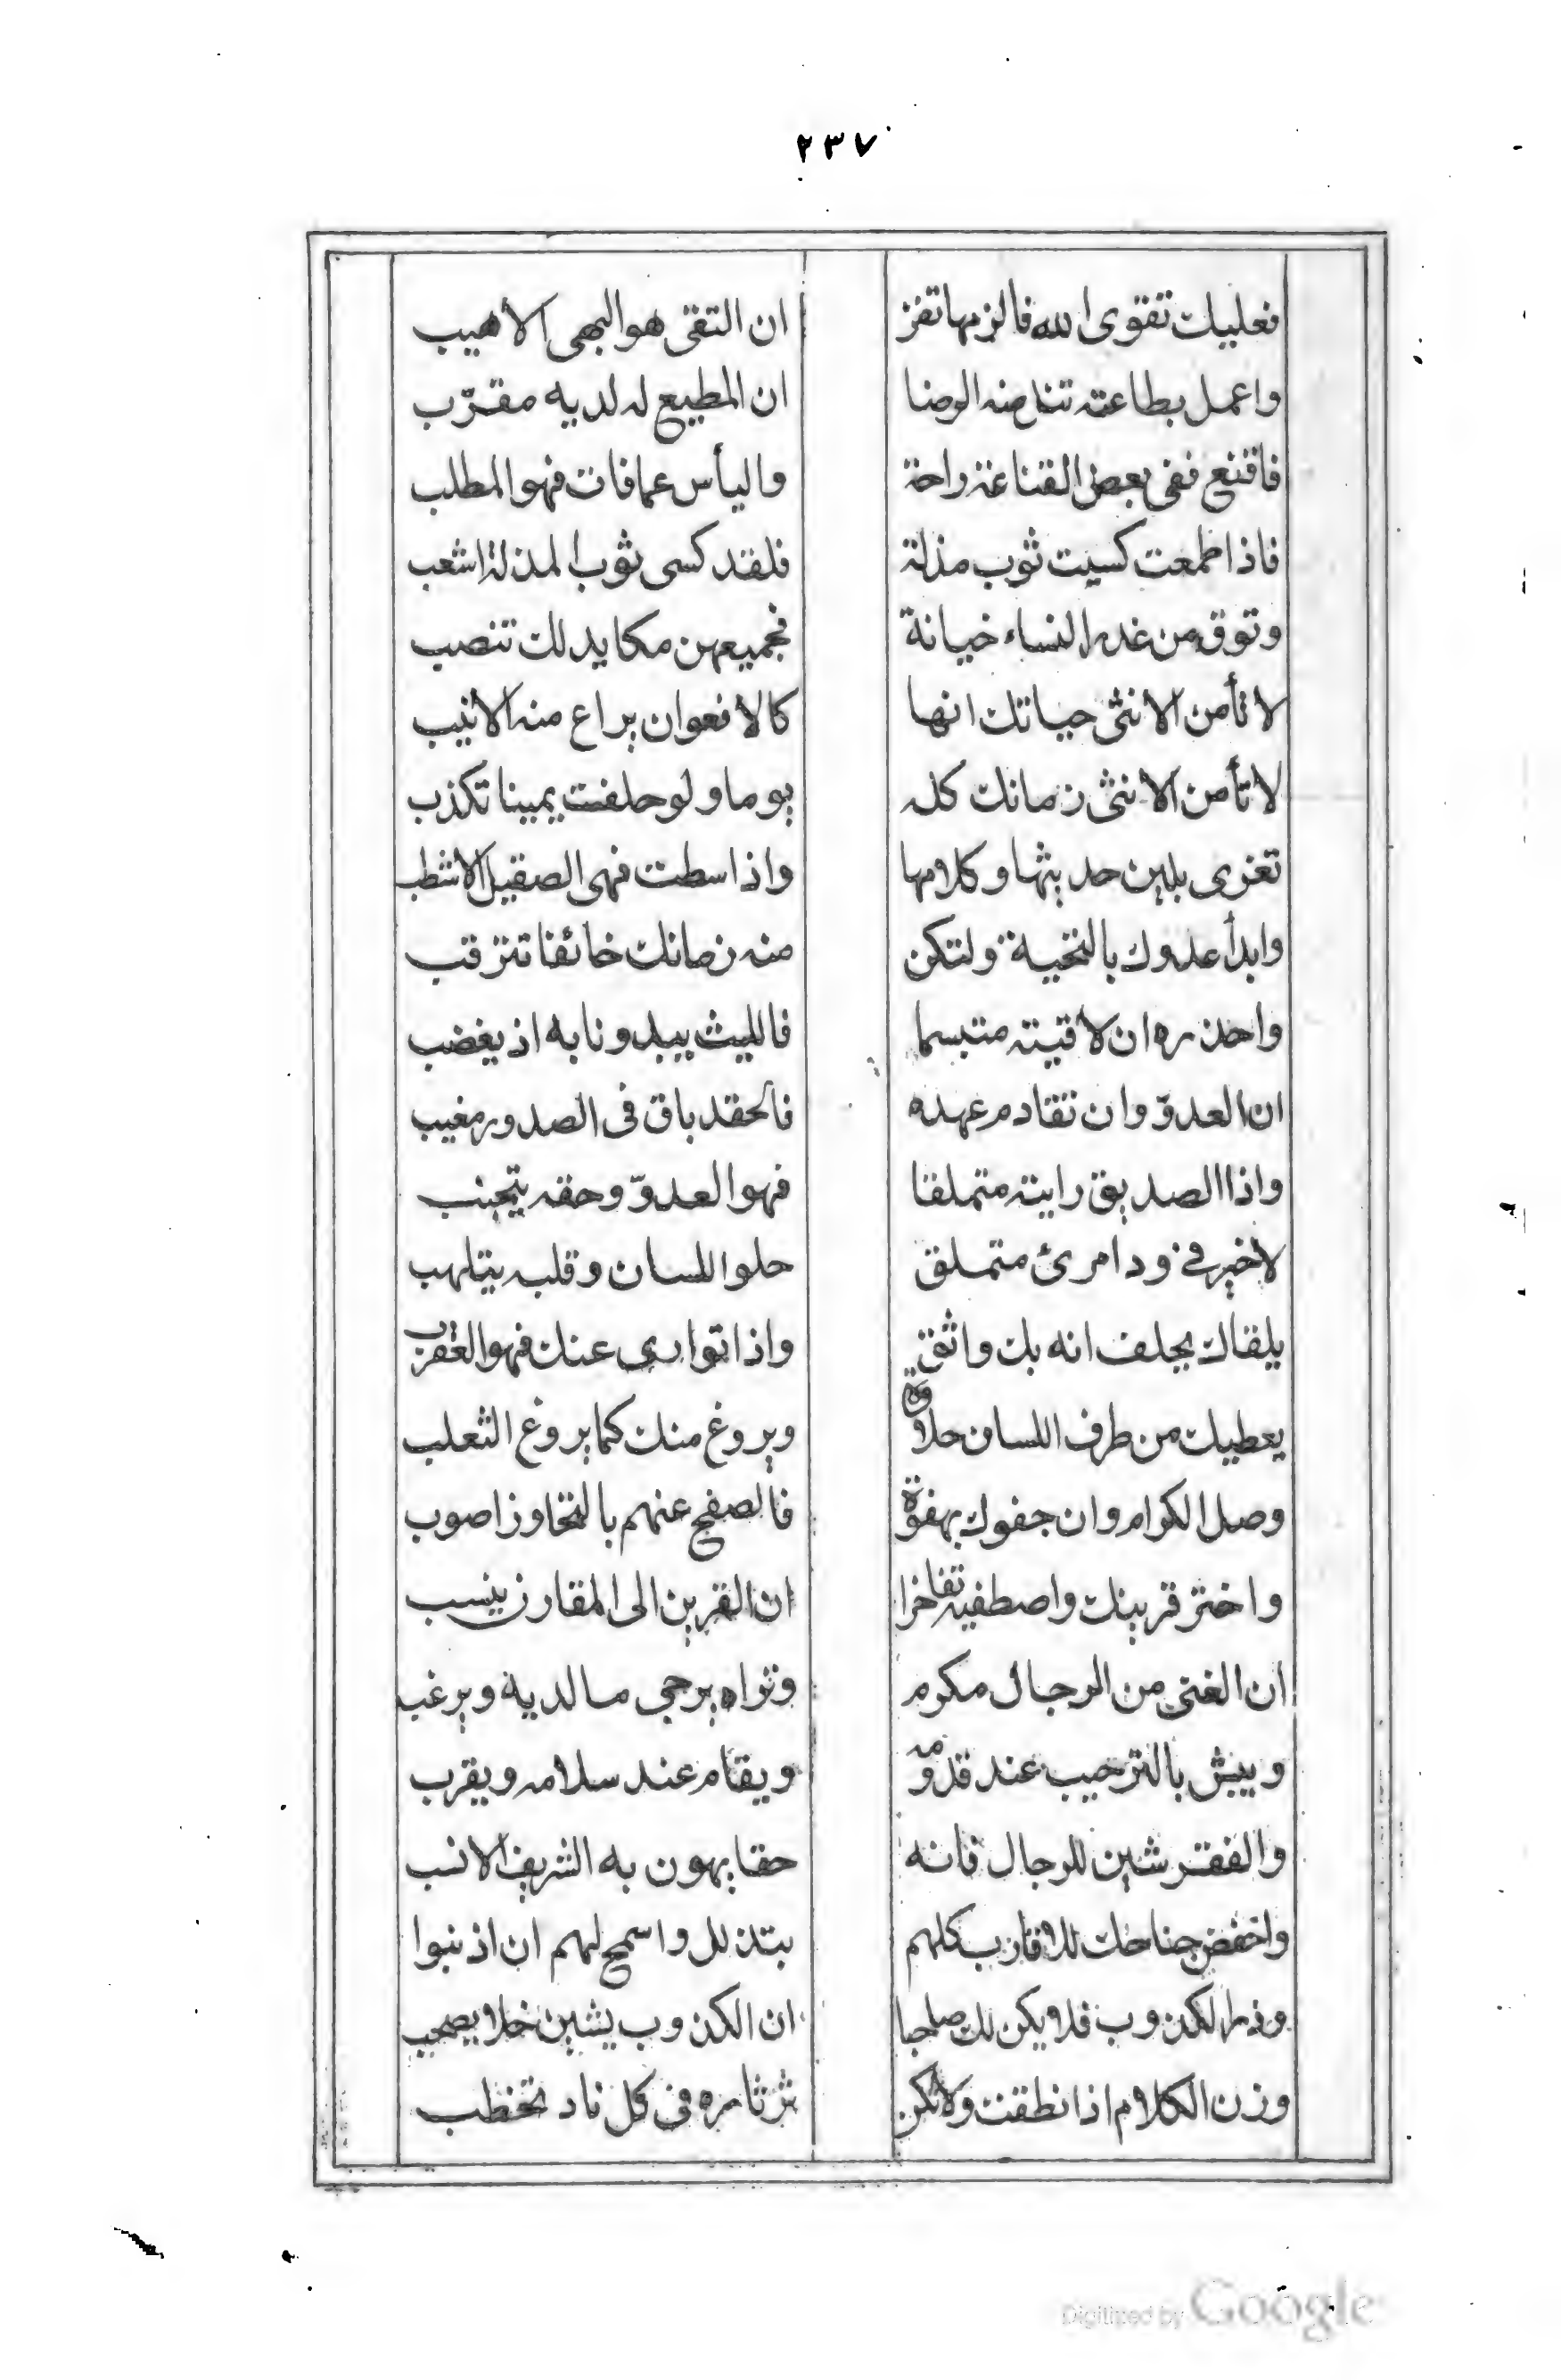 ٢٣٧
فعليك تقوى الله فالزمها تفز ان التقى هو البهى الاهيب
واعمل بطاعته تنل منه الرضا ان المطيع له لديه مقرّب
فاقنع ففى بعض القناعة راحة واليأس عمافات فهو المطلب
فاذا طمعت كسيت ثوب مذلة فلقد كسى ثوب المذلة اشعب
وتوق من غدر النساء خيانة فجميعهن مكايد لك تنصب
لا تأمن الانثى حياتك انها كالافعوان يراع منه الانيب
لا تأمن الانثى زمانك كله يوما ولو حلفت يمينا تكذب
تغرى بلين حديثها وكلامها واذا سطت فهى الصقيل الاشطب
وابدأ عدوك بالتحية ولتكن منه زمانك خائفا تترقب
واحذره ان لاقيته متبسما فالليث يبدو نابه اذ يغضب
ان العدوّ وان تقادم عهده فالحقد باق فى الصدور مغيب
واذا الصديق رايته متملقا فهو العدوّ وحقه يتجنب
لاخير فى ود امرئ متملق حلو اللسان وقلبه يتلهب
يلقاك يحلف انه بك واثق واذا توارى عنك فهو العقرب
يعطيك من طرف اللسان حلاوة ويروغ منك كما يروغ الثعلب
وصل الكرام وان جفوك بهفوة فالصفح عنهم بالتجاوز اصوب
واختر قرينك واصطفيه تفاخرا ان القرين الى المقارن ينسب
ان الغنى من الرجال مكرم وتراه يرجى مالديه ويرغب
ويبش بالترحيب عند قدومه ويقام عند سلامه ويقرب
والفقر شين للرجال فانه حقا يهون به الشريف الانسب
واخفض جناحك للاقارب كلهم بتذلل واسمح لهم ان اذنبوا
وذر الكذوب فلا يكن لك صاحبا ان الكذوب يشين خلا يصحب
وزن الكلام اذا نطقت ولا تكن ثرثاره فى كل ناد تخطب
Digitized by Google